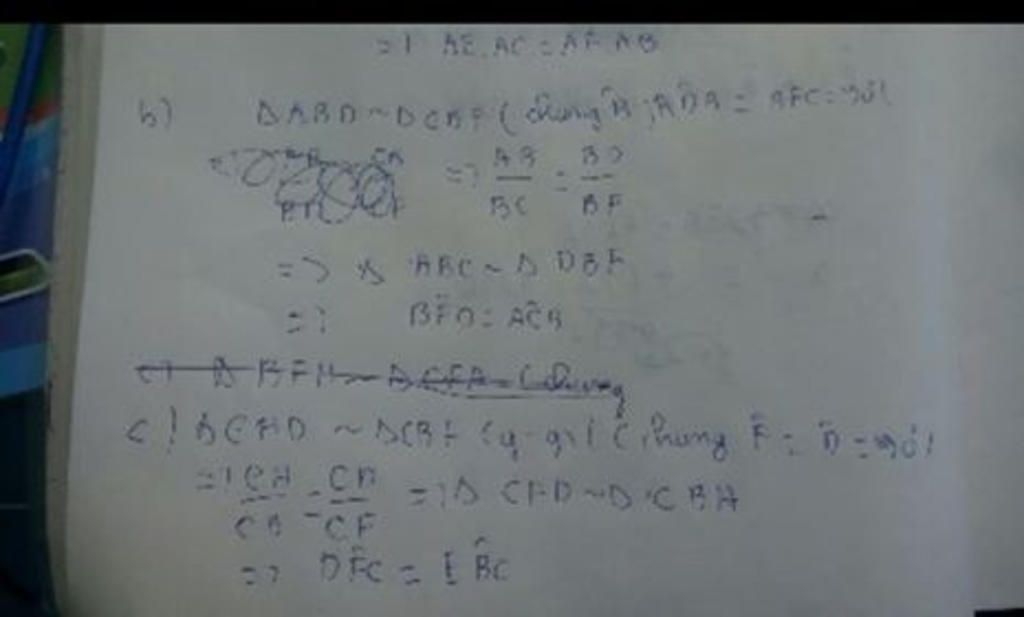 => AE.AC = AF.AB
b) Δ ABD ~ Δ CBF ( chung B̂ ; ADB = AFC = 90°)
=> AB/BC = BD/BF
=> Δ ABC ~ Δ DBF
=> BF̂D = AĈB
c) Δ BFH ~ Δ CFA ( chung
c) Δ CHD ~ Δ CBF (g-g) ( C chung F̂ = D̂ = 90°)
=> CH/CB = CD/CF => Δ CFD ~ Δ CBH
=> DF̂C = EB̂C